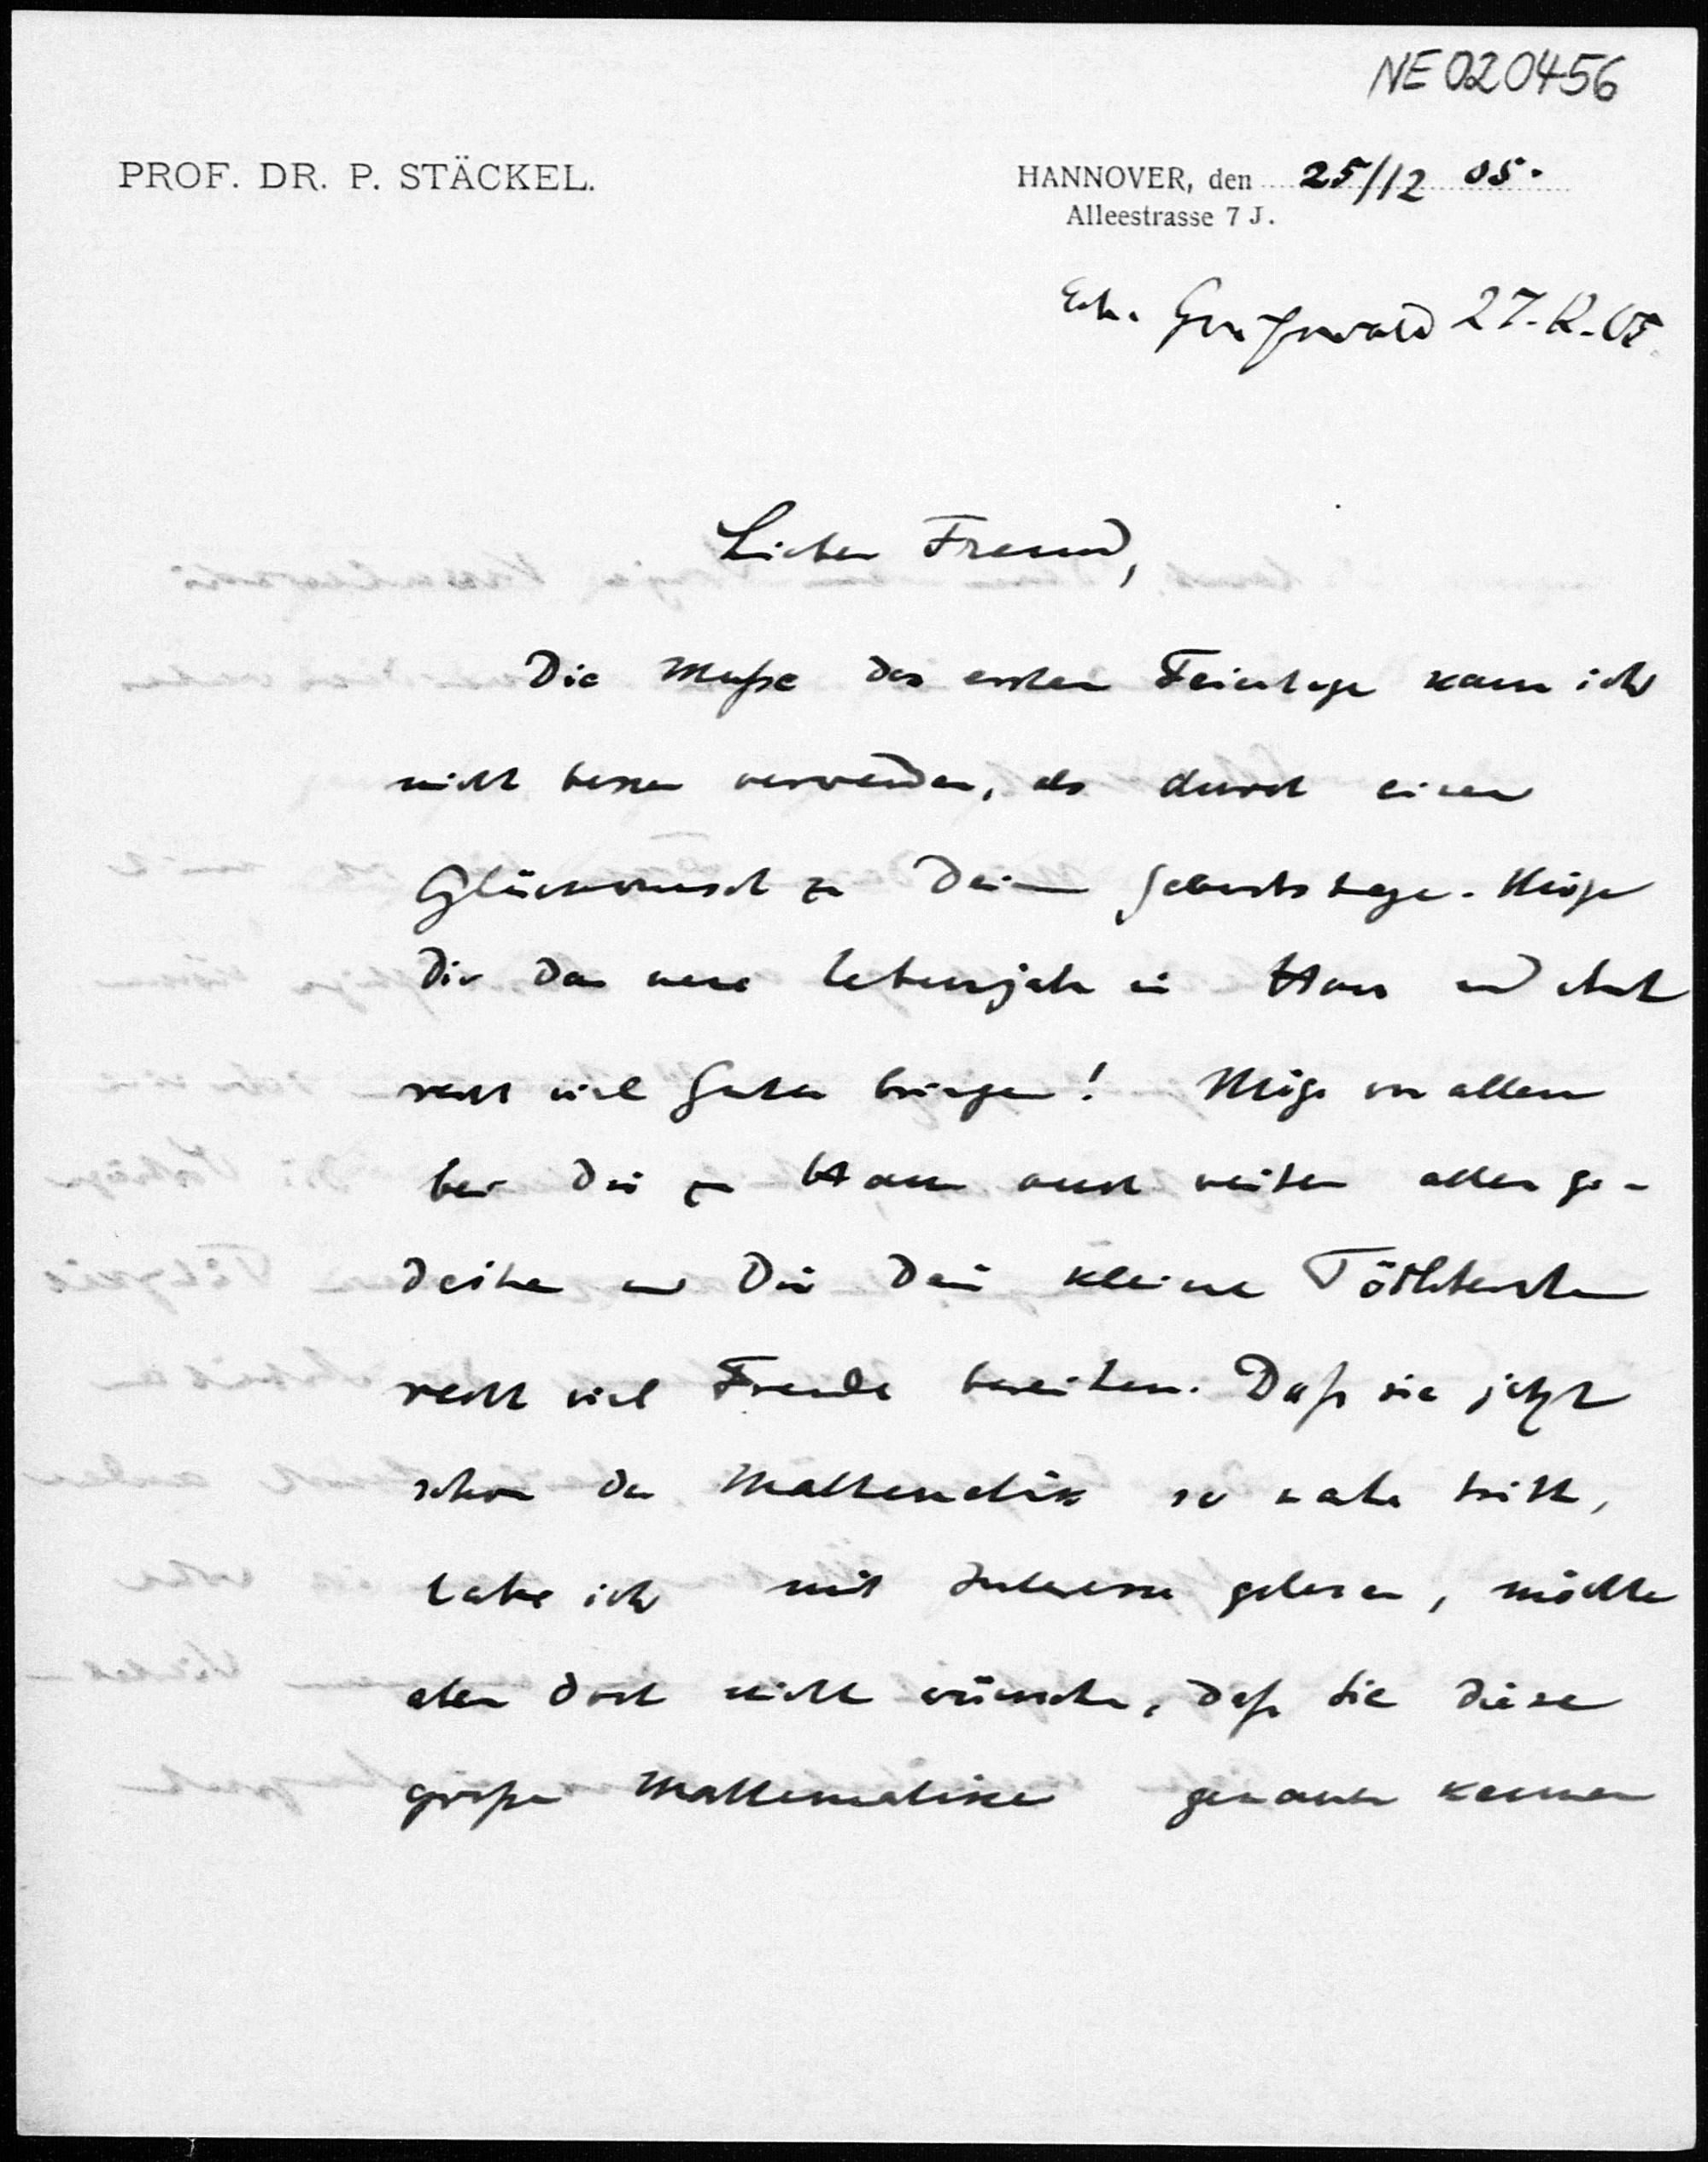 NE020456
PROF. DR. P. STÄCKEL.
HANNOVER, den 25/12 05.
Alleestrasse 7 J.
Erh. Greifswald 27.12.05.
Lieber Freund,
Die Muße des ersten Feiertags kann ich
nicht besser verwenden, als durch einen
Glückwunsch zu Deinem Geburtstage. Möge
Dir das neue Lebensjahr in Haus und Amt
recht viel Gutes bringen! Möge vor allem
bei Dir zu Hause auch weiter alles ge-
deihen und Dir Dein kleines Töchterchen
recht viel Freude bereiten. Daß sie jetzt
schon der Mathematik so nahe tritt,
habe ich mit Interesse gelesen, möchte
aber doch nicht wünschen, daß sie diese
große Mathematiker genauer kennen